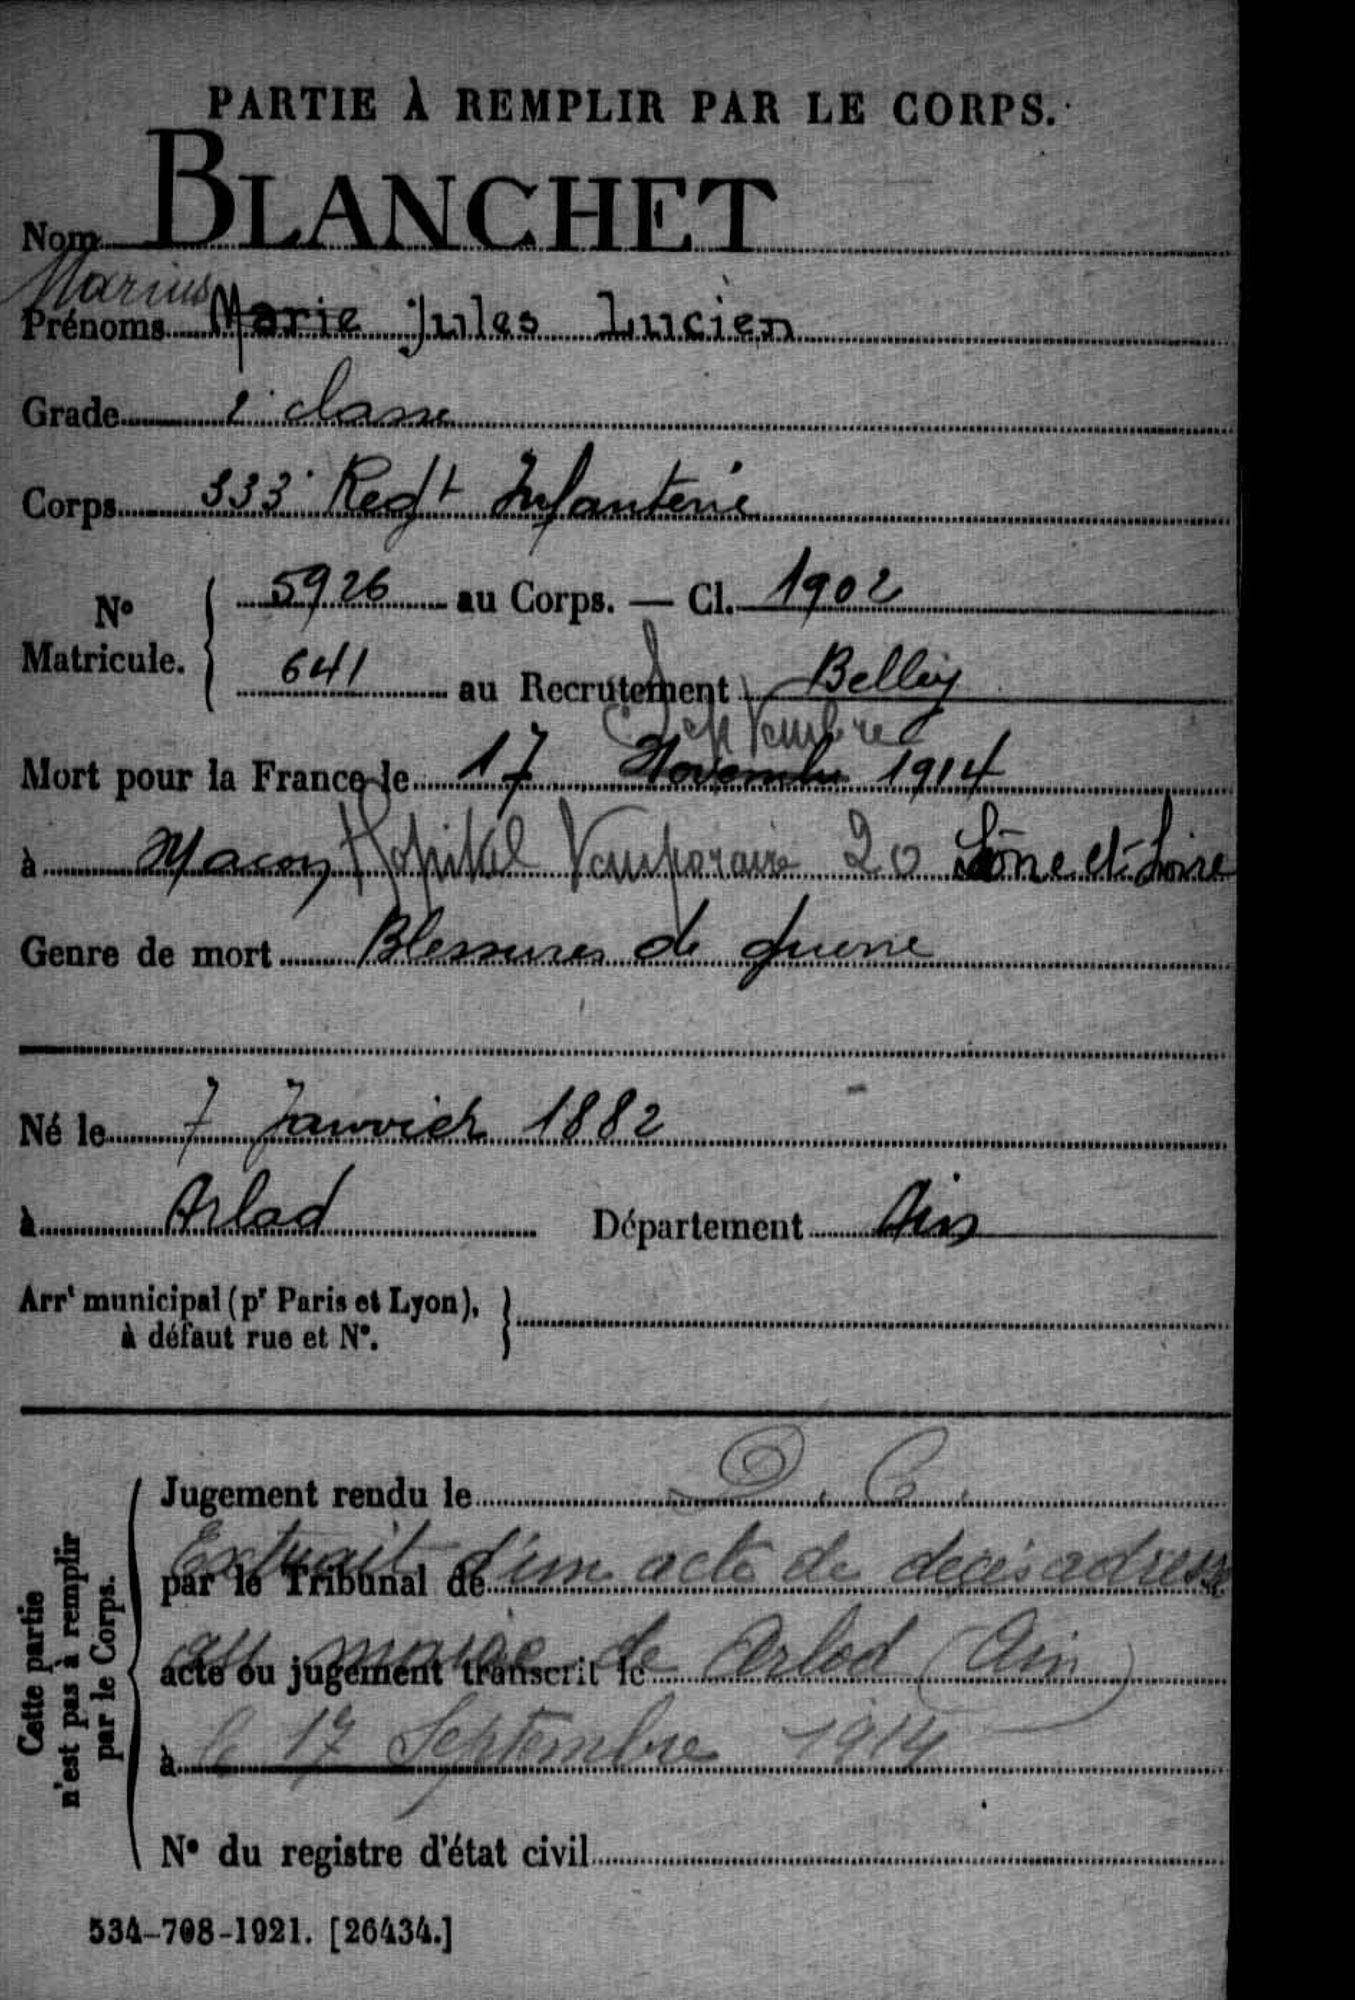 PARTIE À REMPLIR PAR LE CORPS.
Nom BLANCHET
Marius
Prénoms Marie Jules Lucien
Grade 2e classe
Corps 333e Regt Infanterie
No Matricule. { 5926 au Corps. — Cl. 1902
641 au Recrutement Belley
Septembre
Mort pour la France le 17 Novembre 1914
à Macon Hopital Temporaire 20 Saône et Loire
Genre de mort Blessures de guerre
Né le 7 Janvier 1882
à Arlod Département Ain
Arrt municipal (pr Paris et Lyon), à défaut rue et No. }
Cette partie n'est pas à remplir par le Corps.
Jugement rendu le D. C.
Extrait d'un acte de décès adressé
par le Tribunal de
au maire de Arlod (Ain)
acte ou jugement transcrit le
à le 17 Septembre 1914
No du registre d'état civil
534-708-1921. [26434.]